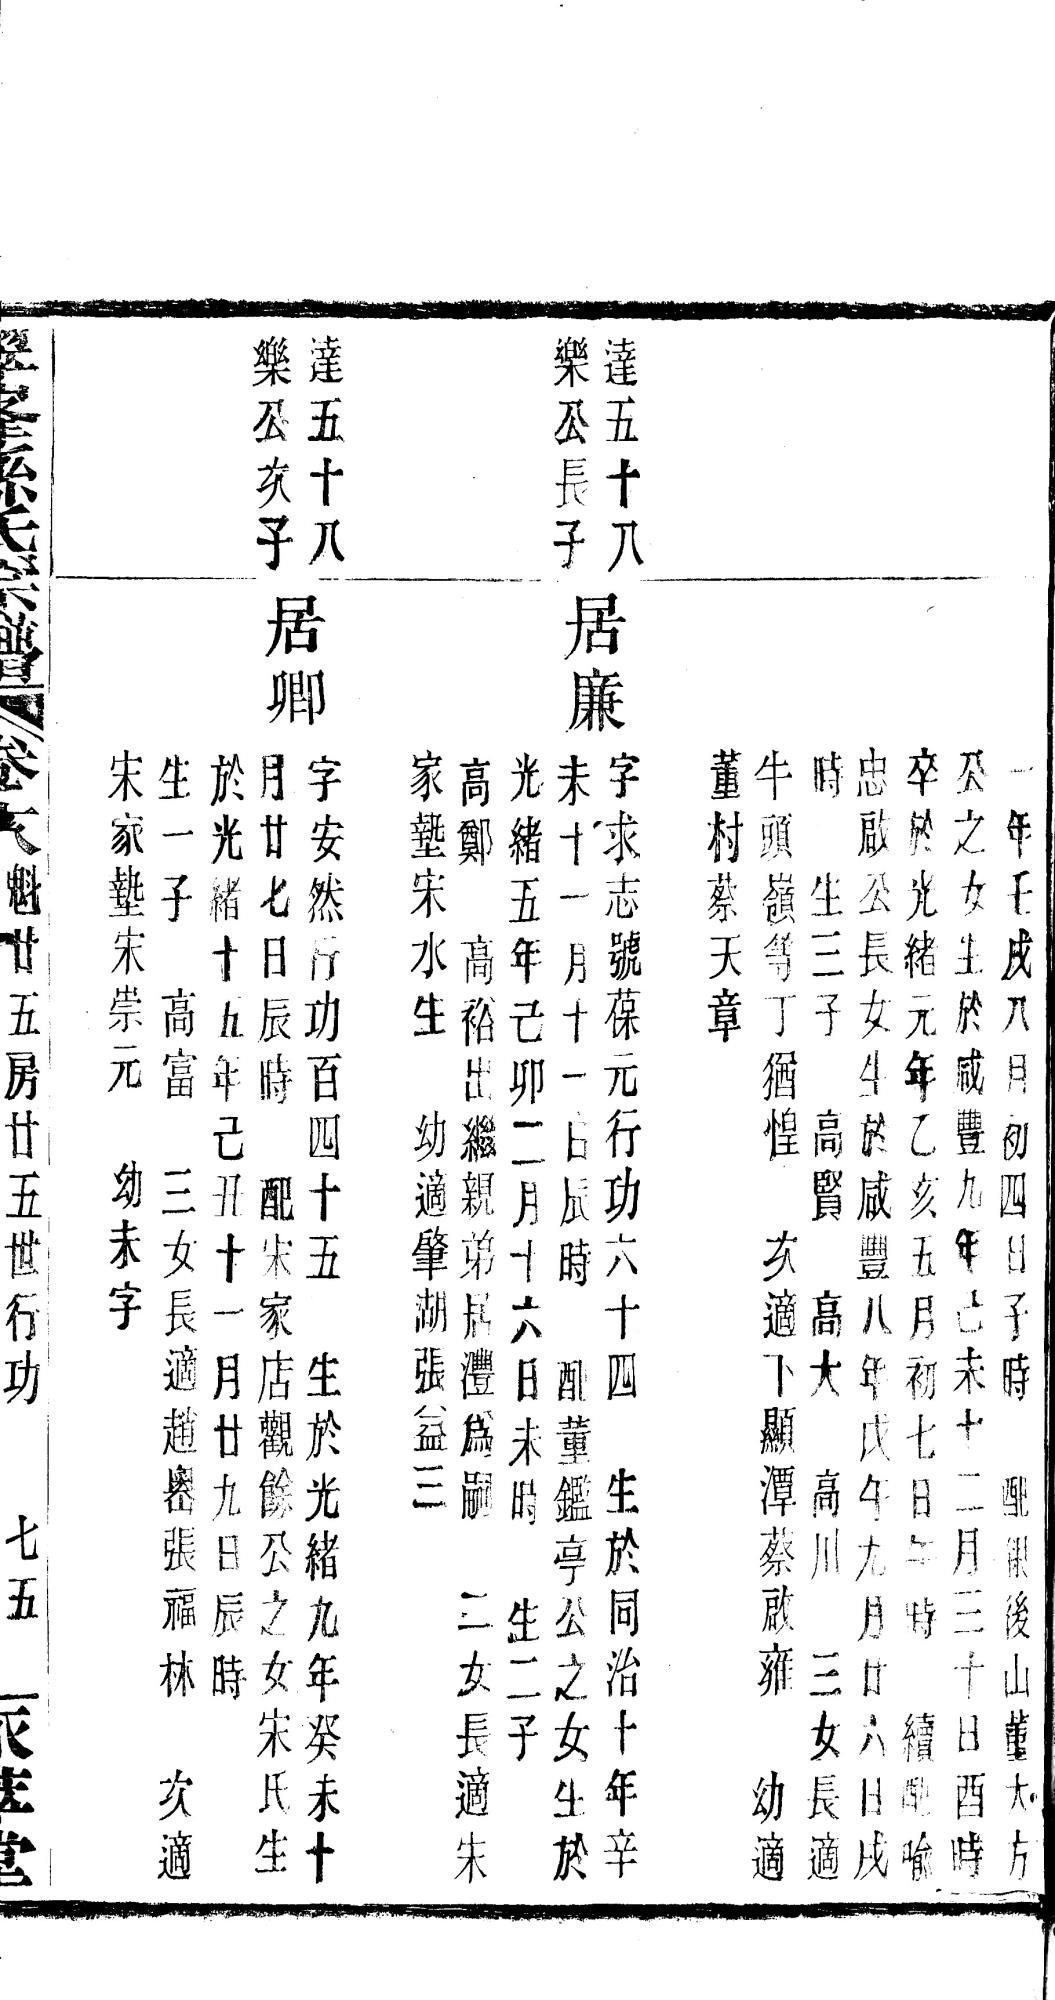 一年壬戌八月初四日子時　配後山董大方
公之女生於咸豐九年己未十二月三十日酉時
卒於光緒元年乙亥五月初七日午時　續配喻
忠啟公長女生於咸豐八年戊午九月廿六日戌
時　生三子　高賢　高大　高川　三女長適
牛頭嶺等丁猶惶　次適下顯潭蔡啟雍　幼適
董村蔡天章
達五十八
樂公長子
居廉
字求志號葆元行功六十四　生於同治十年辛
未十一月十一日辰時　配董鑑亭公之女生於
光緒五年己卯二月十六日未時　生二子
高鄭　高裕出繼親弟居灃為嗣　二女長適朱
家塾宋水生　幼適肇湖張益三
達五十八
樂公次子
居卿
字安然行功百四十五　生於光緒九年癸未十
月廿七日辰時　配宋家店觀餘公之女宋氏生
於光緒十五年己丑十一月廿九日辰時
生一子　高富　三女長適趙嶴張福林　次適
宋家塾宋崇元　幼未字
孫氏宗譜　卷六　魁廿五房廿五世行功　七五　堂